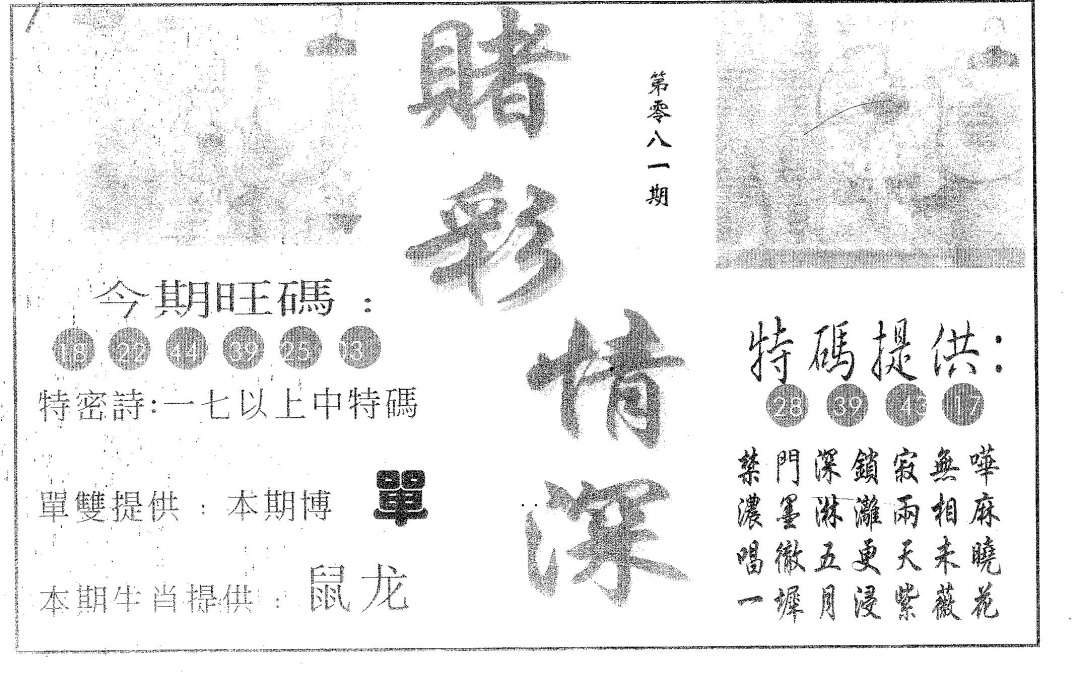 賭彩情深
第零八一期
今期旺碼：
18 22 44 39 25 03
特密詩:一七以上中特碼
單雙提供：本期博 單
本期生肖提供：鼠龙
特碼提供：
28 39 43 17
禁門深鎖寂無嘩
濃墨淋灕兩相麻
唱徹五更天未曉
一墀月浸紫薇花